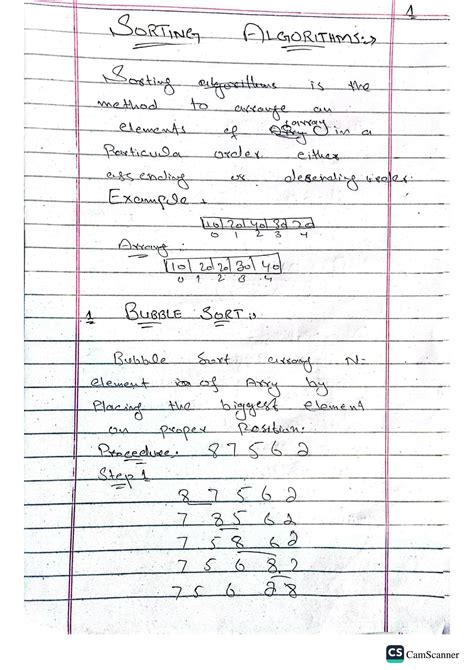 1
SORTING ALGORITHMS:→
Sorting algorithms is the
method to arrange an
elements of Array (array) in a
Particula order either
assending or desending order.
Example:
10 20 40 30 20
0 1 2 3 4
Array:
10 20 20 30 40
0 1 2 3 4
1 BUBBLE SORT:
Bubble Sort array N-
element of Arry by
Placing the biggest element
on proper Position.
Procedure. 8 7 5 6 2
Step 1
8 7 5 6 2
7 8 5 6 2
7 5 8 6 2
7 5 6 8 2
7 5 6 2 8
CS CamScanner